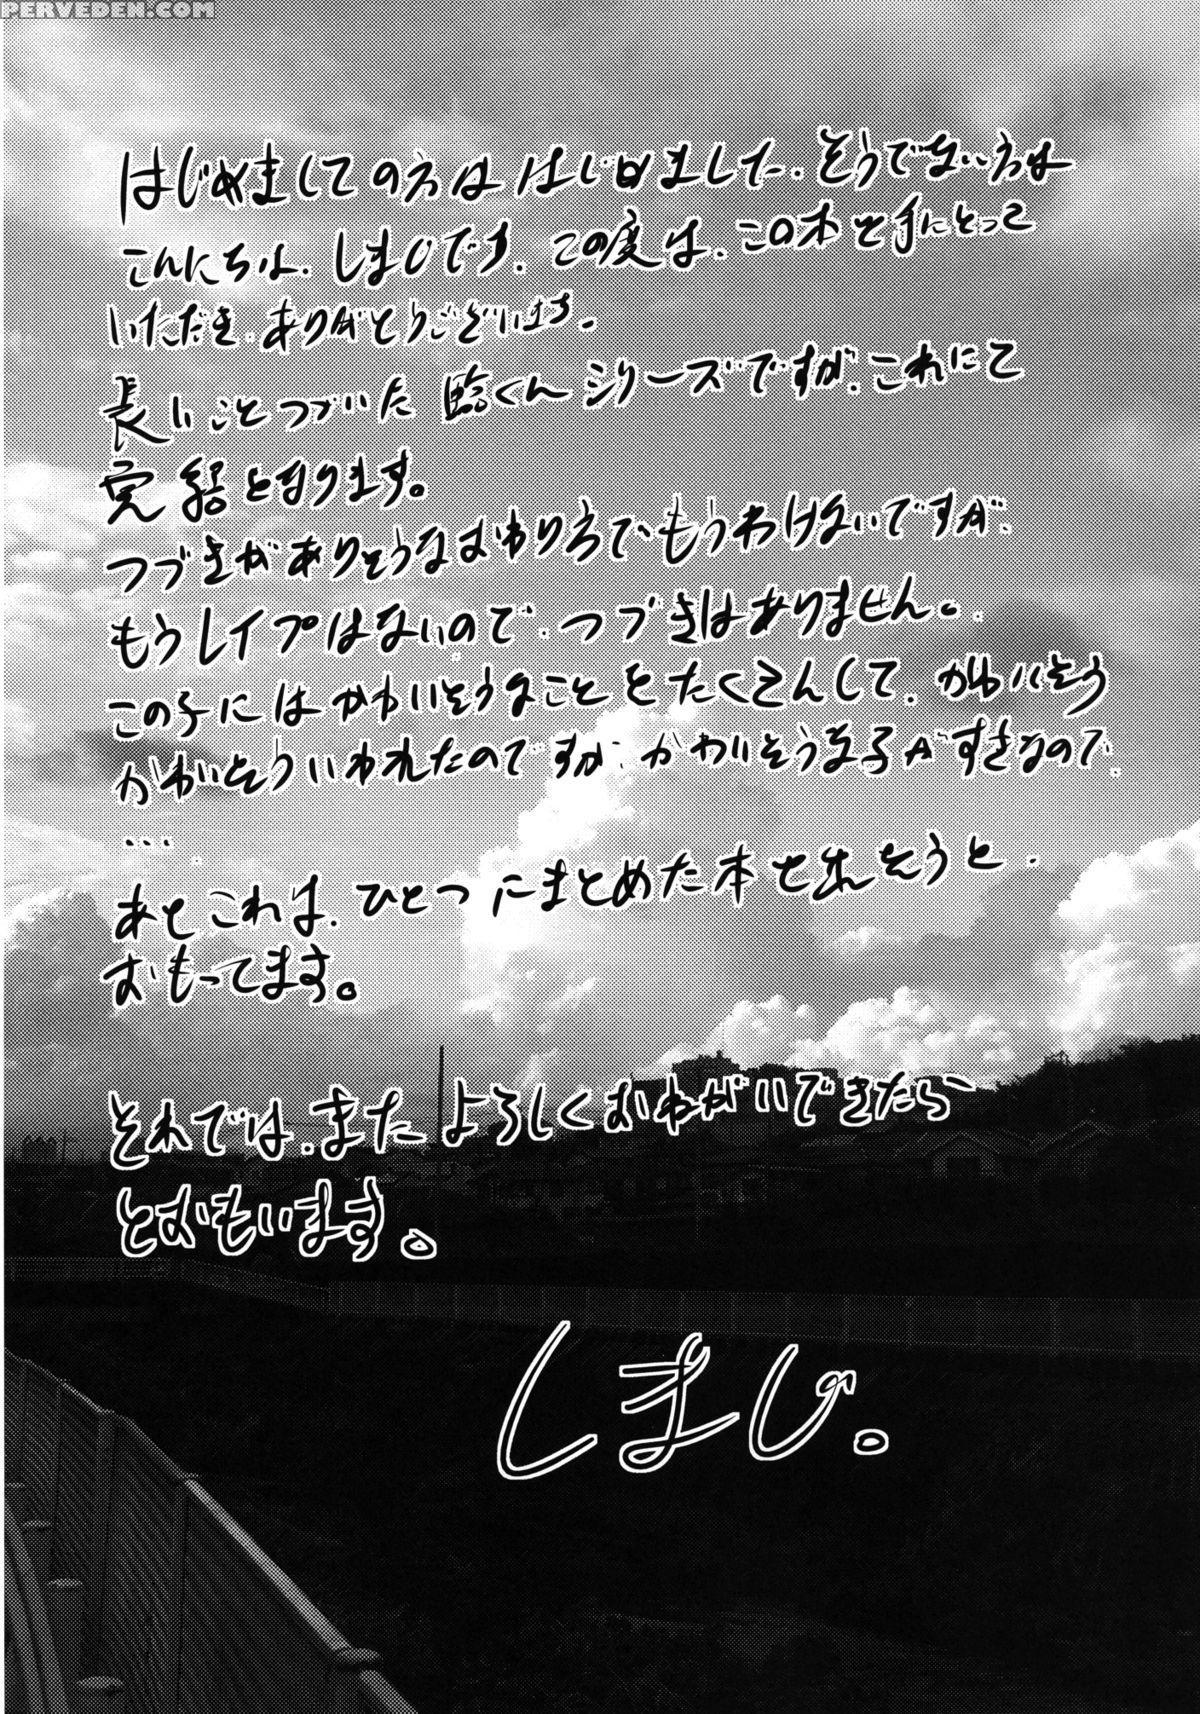 PERVEDEN.COM
はじめましての方ははじめました. そうでない方は
こんにちは. しまじです. この度は. この本を手にとって
いただき. ありがとうございます。
長いことつづいた 臨くんシリーズですが. これにて
完結となります。
つづきがありそうなおわり方でもうわけないですが.
もうレイプはないので. つづきはありません。
この子にはかわいそうなことをたくさんして. かわいそう
かわいそういわれたのですが. かわいそうな子がすきなので
...
あと これは. ひとつにまとめた本を出そうと.
おもってます。
それでは. また よろしくおねがいできたら
とおもいます。
しまじ。